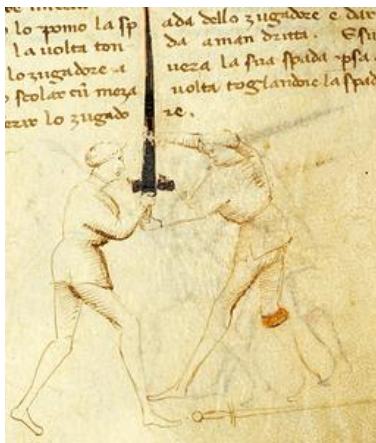 o lo pomo la spada dello zugadore e dar
la volta tonda a man dritta. E su
lo zugadore avera la sua spada psa
scolar cū meza volta toglandoie la spad
lo zugadore.